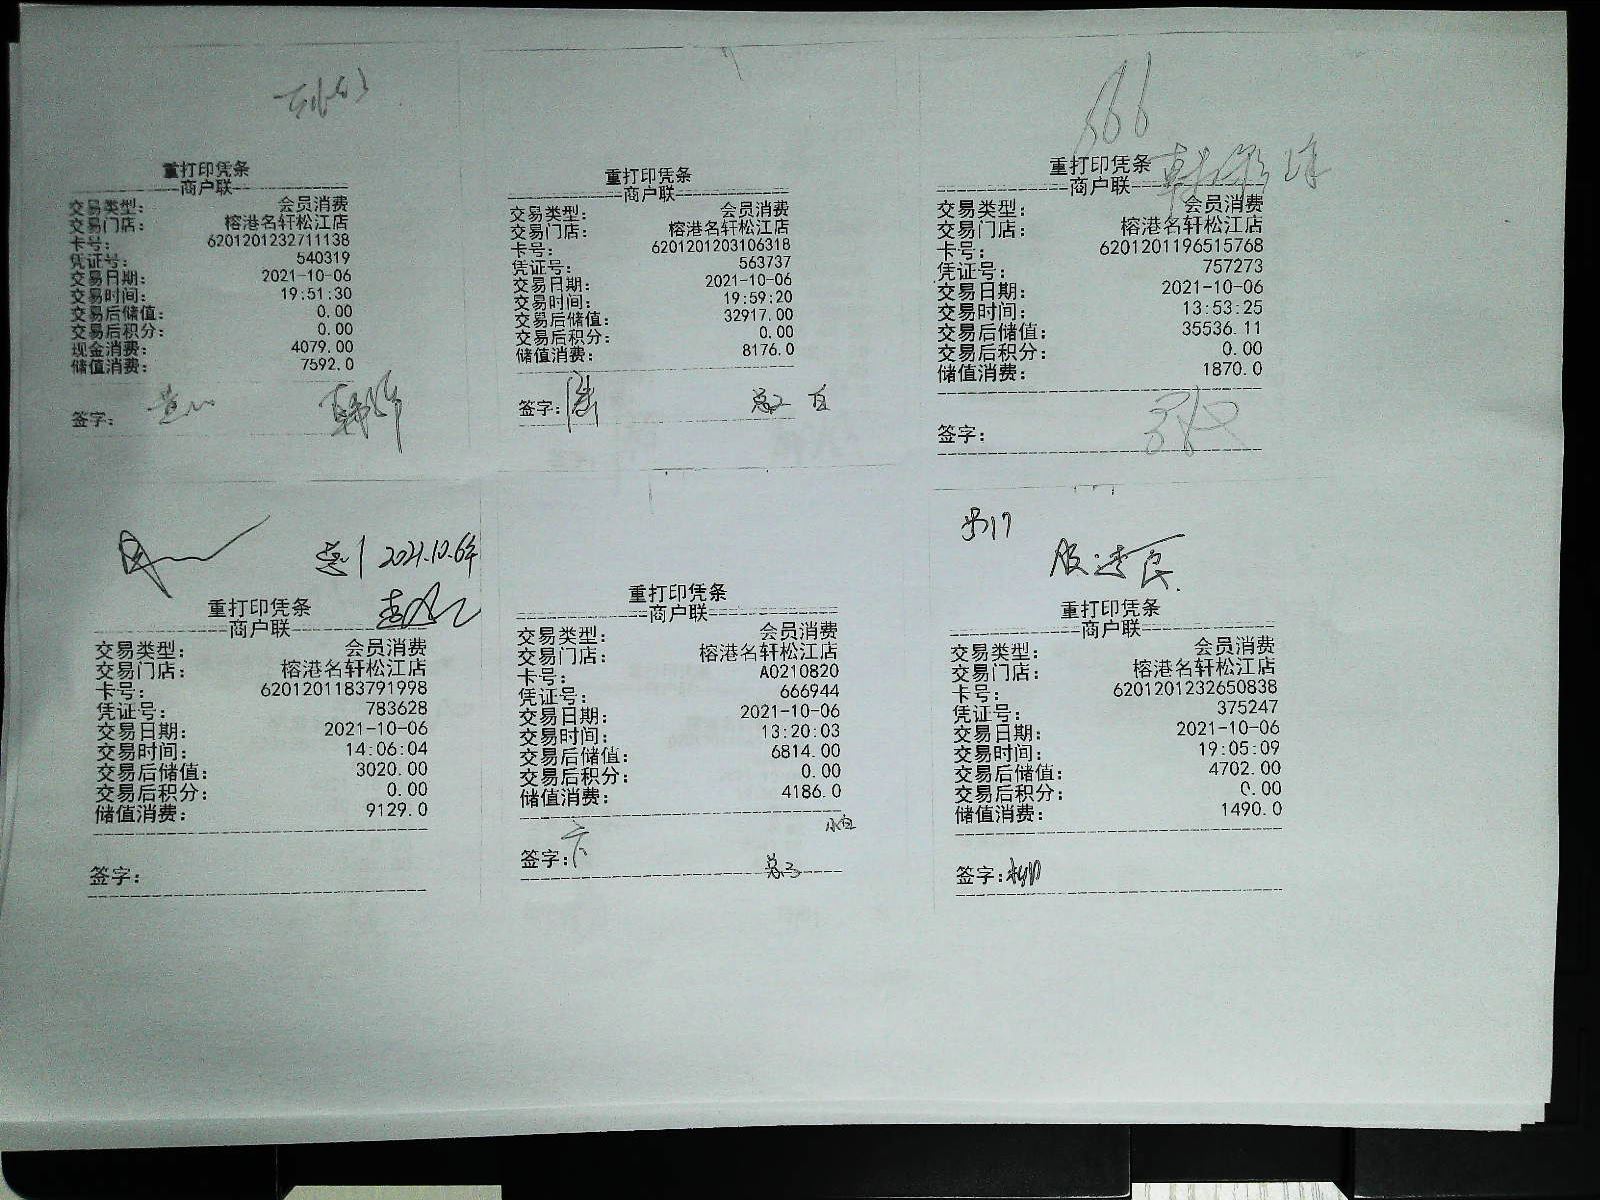 重打印凭条
商户联
交易类型: 会员消费
交易门店: 榕港名轩松江店
卡号: 6201201232711138
凭证号: 540319
交易日期: 2021-10-06
交易时间: 19:51:30
交易后储值: 0.00
交易后积分: 0.00
现金消费: 4079.00
储值消费: 7592.0
签字:
重打印凭条
商户联
交易类型: 会员消费
交易门店: 榕港名轩松江店
卡号: 6201201203106318
凭证号: 563737
交易日期: 2021-10-06
交易时间: 19:59:20
交易后储值: 32917.00
交易后积分: 0.00
储值消费: 8176.0
签字:
666
重打印凭条
商户联
交易类型: 会员消费
交易门店: 榕港名轩松江店
卡号: 6201201196515768
凭证号: 757273
交易日期: 2021-10-06
交易时间: 13:53:25
交易后储值: 35536.11
交易后积分: 0.00
储值消费: 1870.0
签字:
2021.10.6
重打印凭条
商户联
交易类型: 会员消费
交易门店: 榕港名轩松江店
卡号: 6201201183791998
凭证号: 783628
交易日期: 2021-10-06
交易时间: 14:06:04
交易后储值: 3020.00
交易后积分: 0.00
储值消费: 9129.0
签字:
重打印凭条
商户联
交易类型: 会员消费
交易门店: 榕港名轩松江店
卡号: A0210820
凭证号: 666944
交易日期: 2021-10-06
交易时间: 13:20:03
交易后储值: 6814.00
交易后积分: 0.00
储值消费: 4186.0
签字:
重打印凭条
商户联
交易类型: 会员消费
交易门店: 榕港名轩松江店
卡号: 6201201232650838
凭证号: 375247
交易日期: 2021-10-06
交易时间: 19:05:09
交易后储值: 4702.00
交易后积分: 0.00
储值消费: 1490.0
签字: